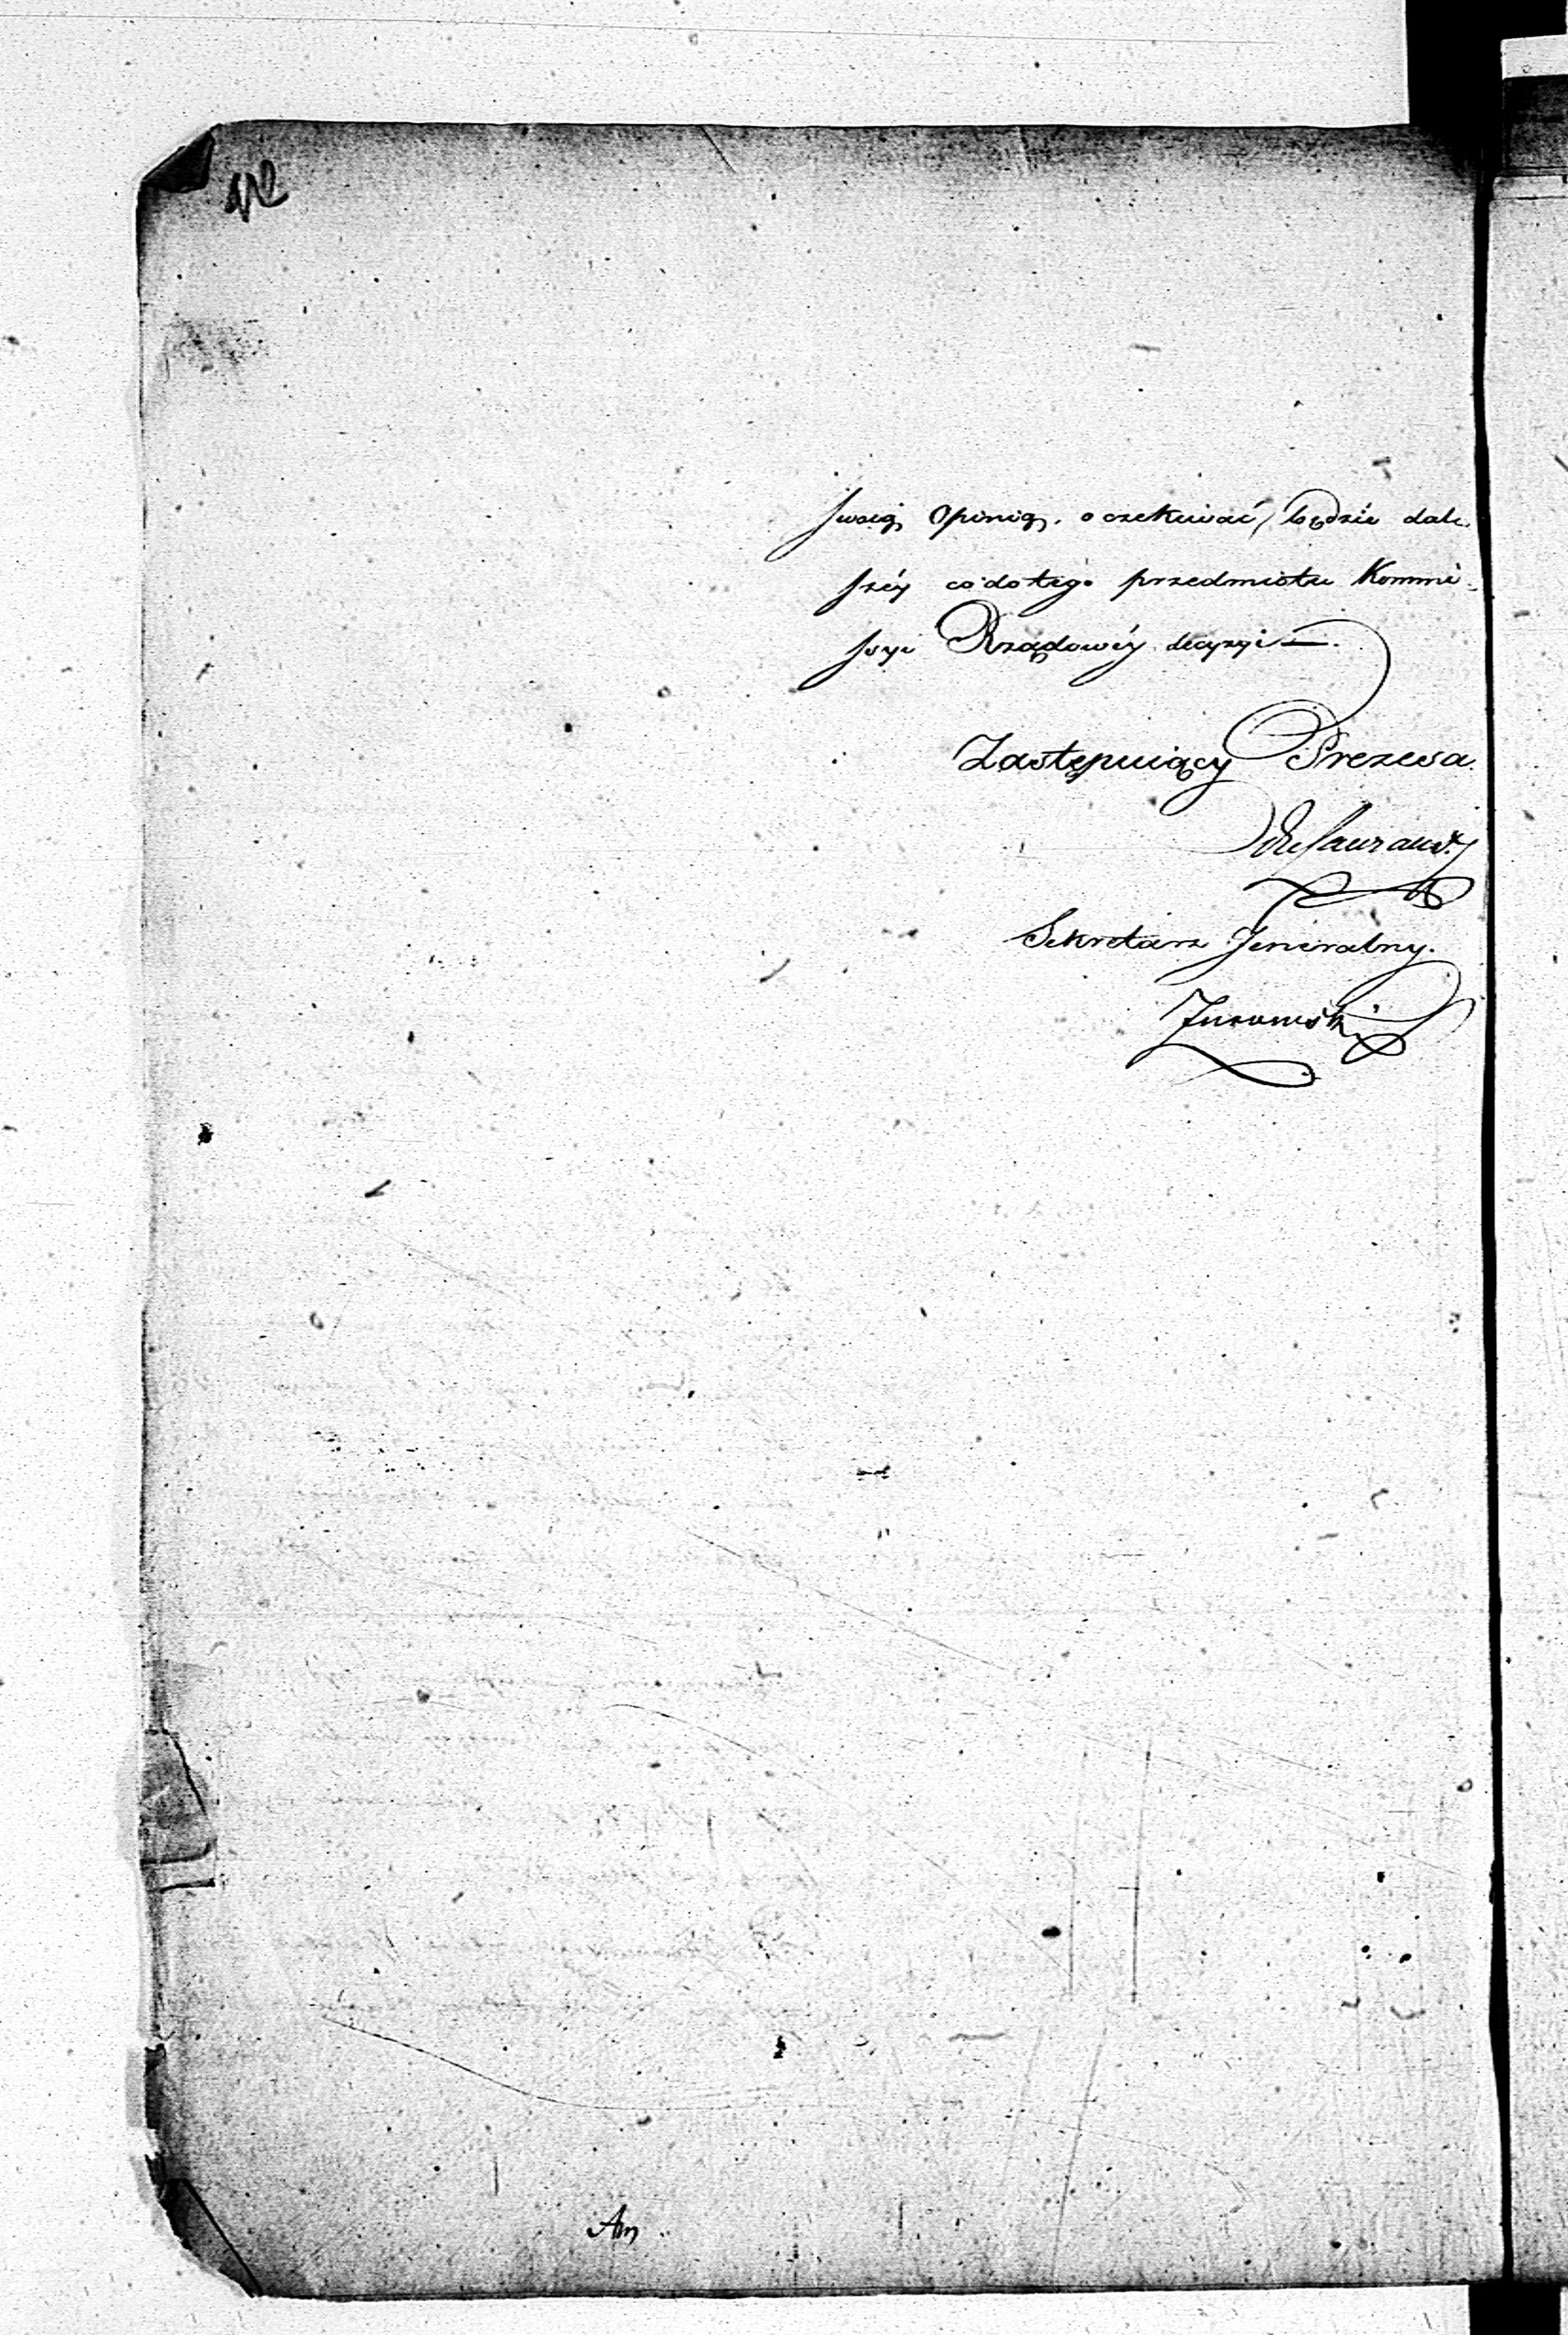 swoią Opinią, oczekiwać będzie dal-
széy co do tego przedmiotu Kommi-
ssyi Rządowéy decyzyi —.
Zastępuiący Prezesa.
Sekretarz Jeneralny.
Am